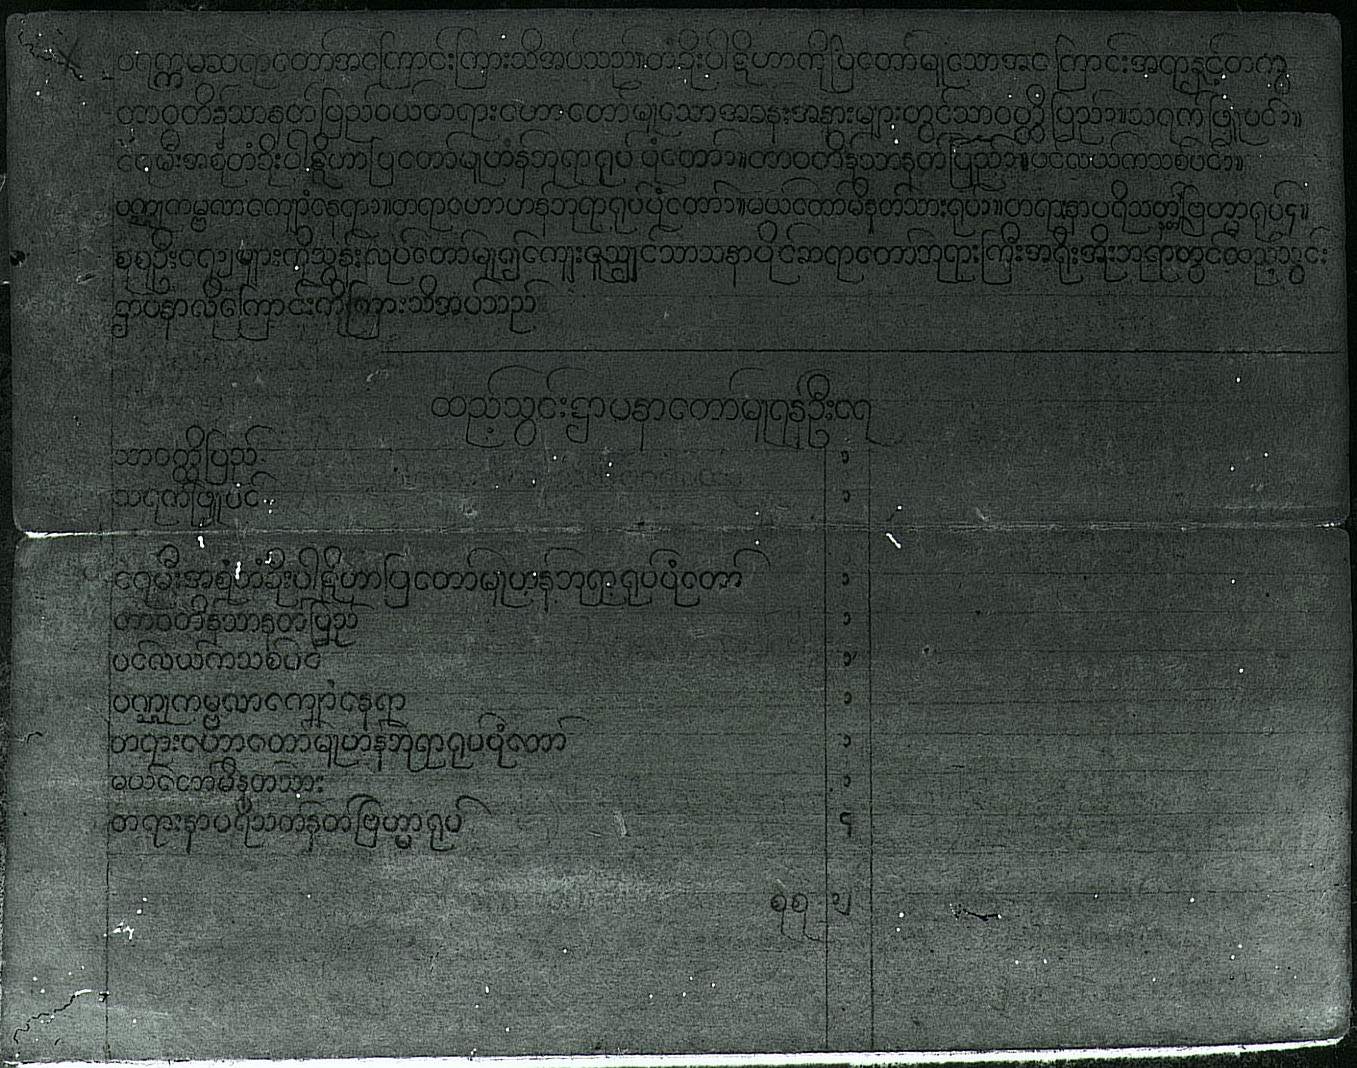 ပရက္ကမဆရာတော်အကြောင်းကြားသိအပ်သည်။တံခိုးပါဋိဟာကိုပြတော်မူသောအကြောင်းအရာနှင့်တကွ
တာဝတိန်သာနတ်ပြည်ဝယ်တရားဟောတော်မူသောအခန်းအနားများတွင်သာဝတ္ထိပြည်၁။သရက်ဖြူပင်၁။
ရေမီးအစုံတံခိုးပါဋိဟာပြတော်မူဟန်ဘုရာရုပ်ပုံတော်၁။တာဝတိန်သာနတ်ပြည်၁။ပင်လယ်ကသစ်ပင်၁။
ပဏ္ဍုကမ္ဗလာကျောံနေရာ၁။တရာဟောဟန်ဘုရာရုပ်ပုံတော်၁။မယ်တော်မိနတ်သားရုပ်၁။တရာနာပရိသတ်နတ်ဗြဟ္မာရုပ်၄။
စုစုဦးရေ၂များကိုသွန်းလုပ်တော်မူ၍ကျေးဇူးသျှင်သာသနာပိုင်ဆရာတော်ဘုရားကြီးအရိုးအိုးဘုရာတွင်ထည့်သွင်း
ဌာပနာလိုကြောင်းကိုကြားသိအပ်သည်
ထည့်သွင်းဌာပနာတော်မူရန်ဦးရေ
သာဝတ္ထိပြည် ၁
သရက်ဖြူပင် ၁
ရေမီးအစုံတံခိုးပါဋိဟာပြတော်မူဟန်ဘုရာရုပ်ပုံတော် ၁
တာဝတိန်သာနတ်ပြည် ၁
ပင်လယ်ကသစ်ပင် ၁
ပဏ္ဍုကမ္ဗလာကျောံနေရာ ၁
တရားဟောတော်မူဟန်ဘုရာရုပ်ပုံတော် ၁
မယ်တော်မိနတ်သား ၁
တရားနာပရိသတ်နတ်ဗြဟ္မာရုပ် ၄
စုစု